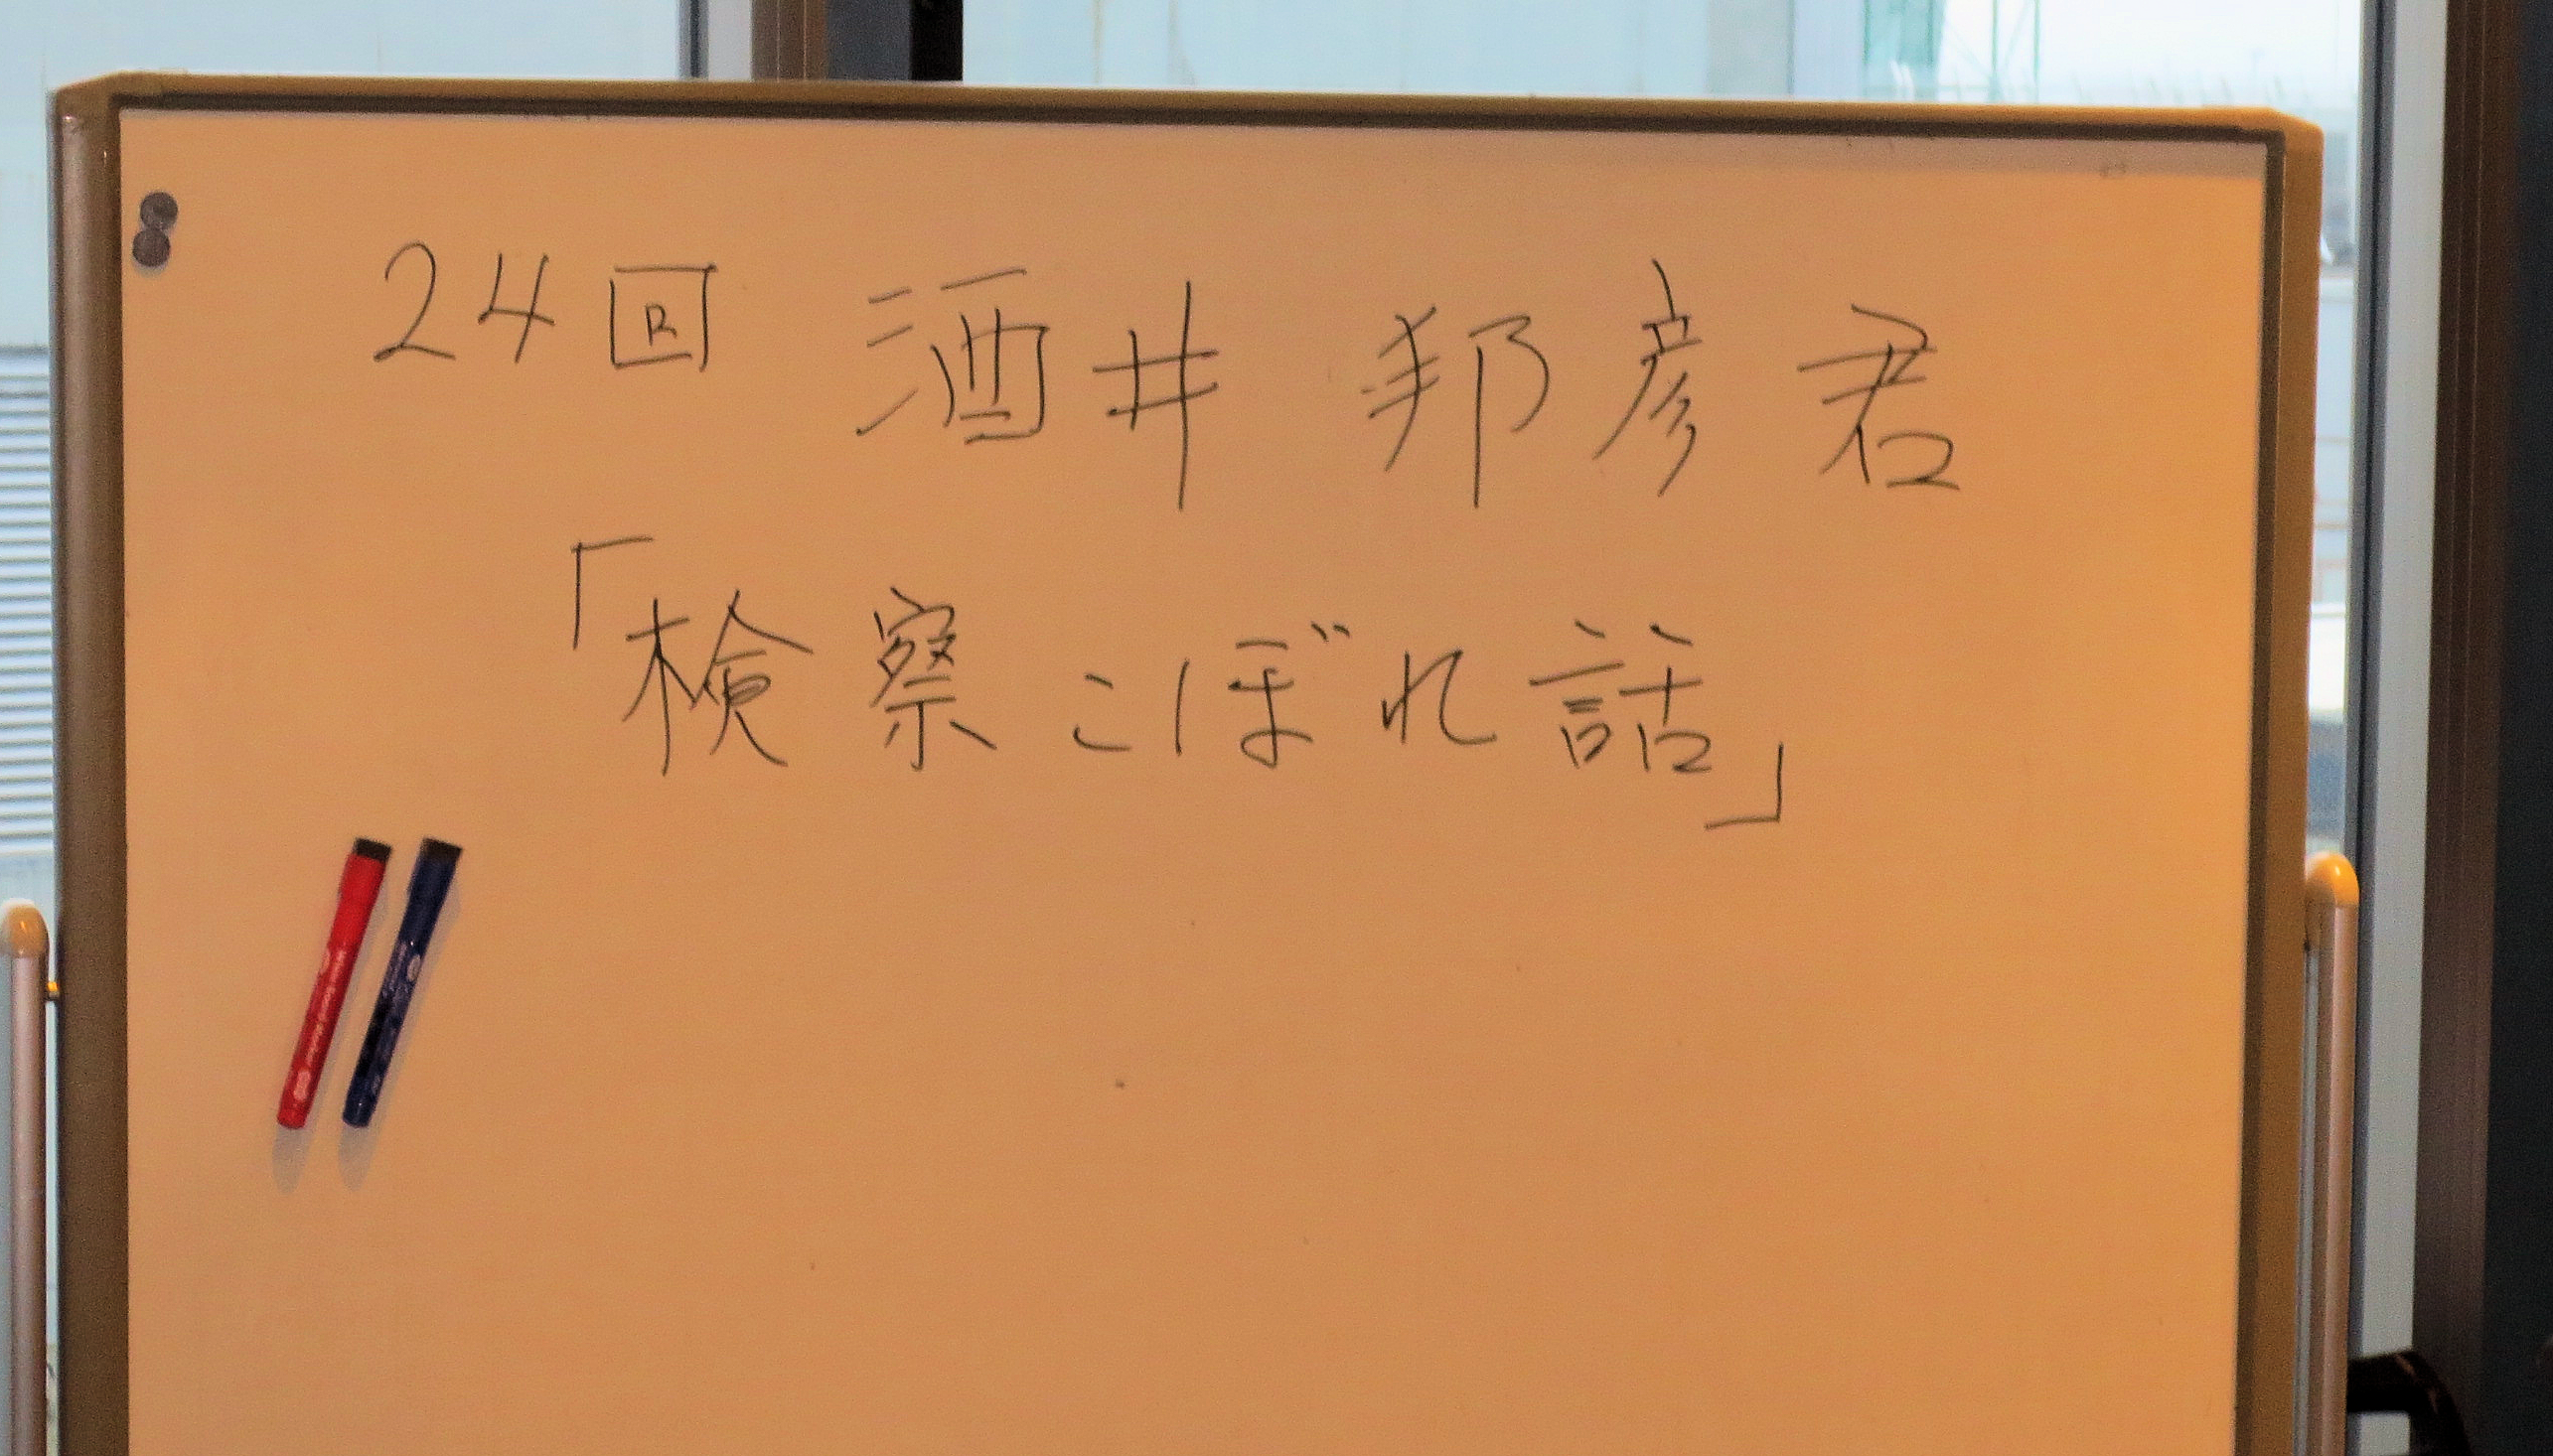 24回 酒井 邦彦 君
「検察こぼれ話」